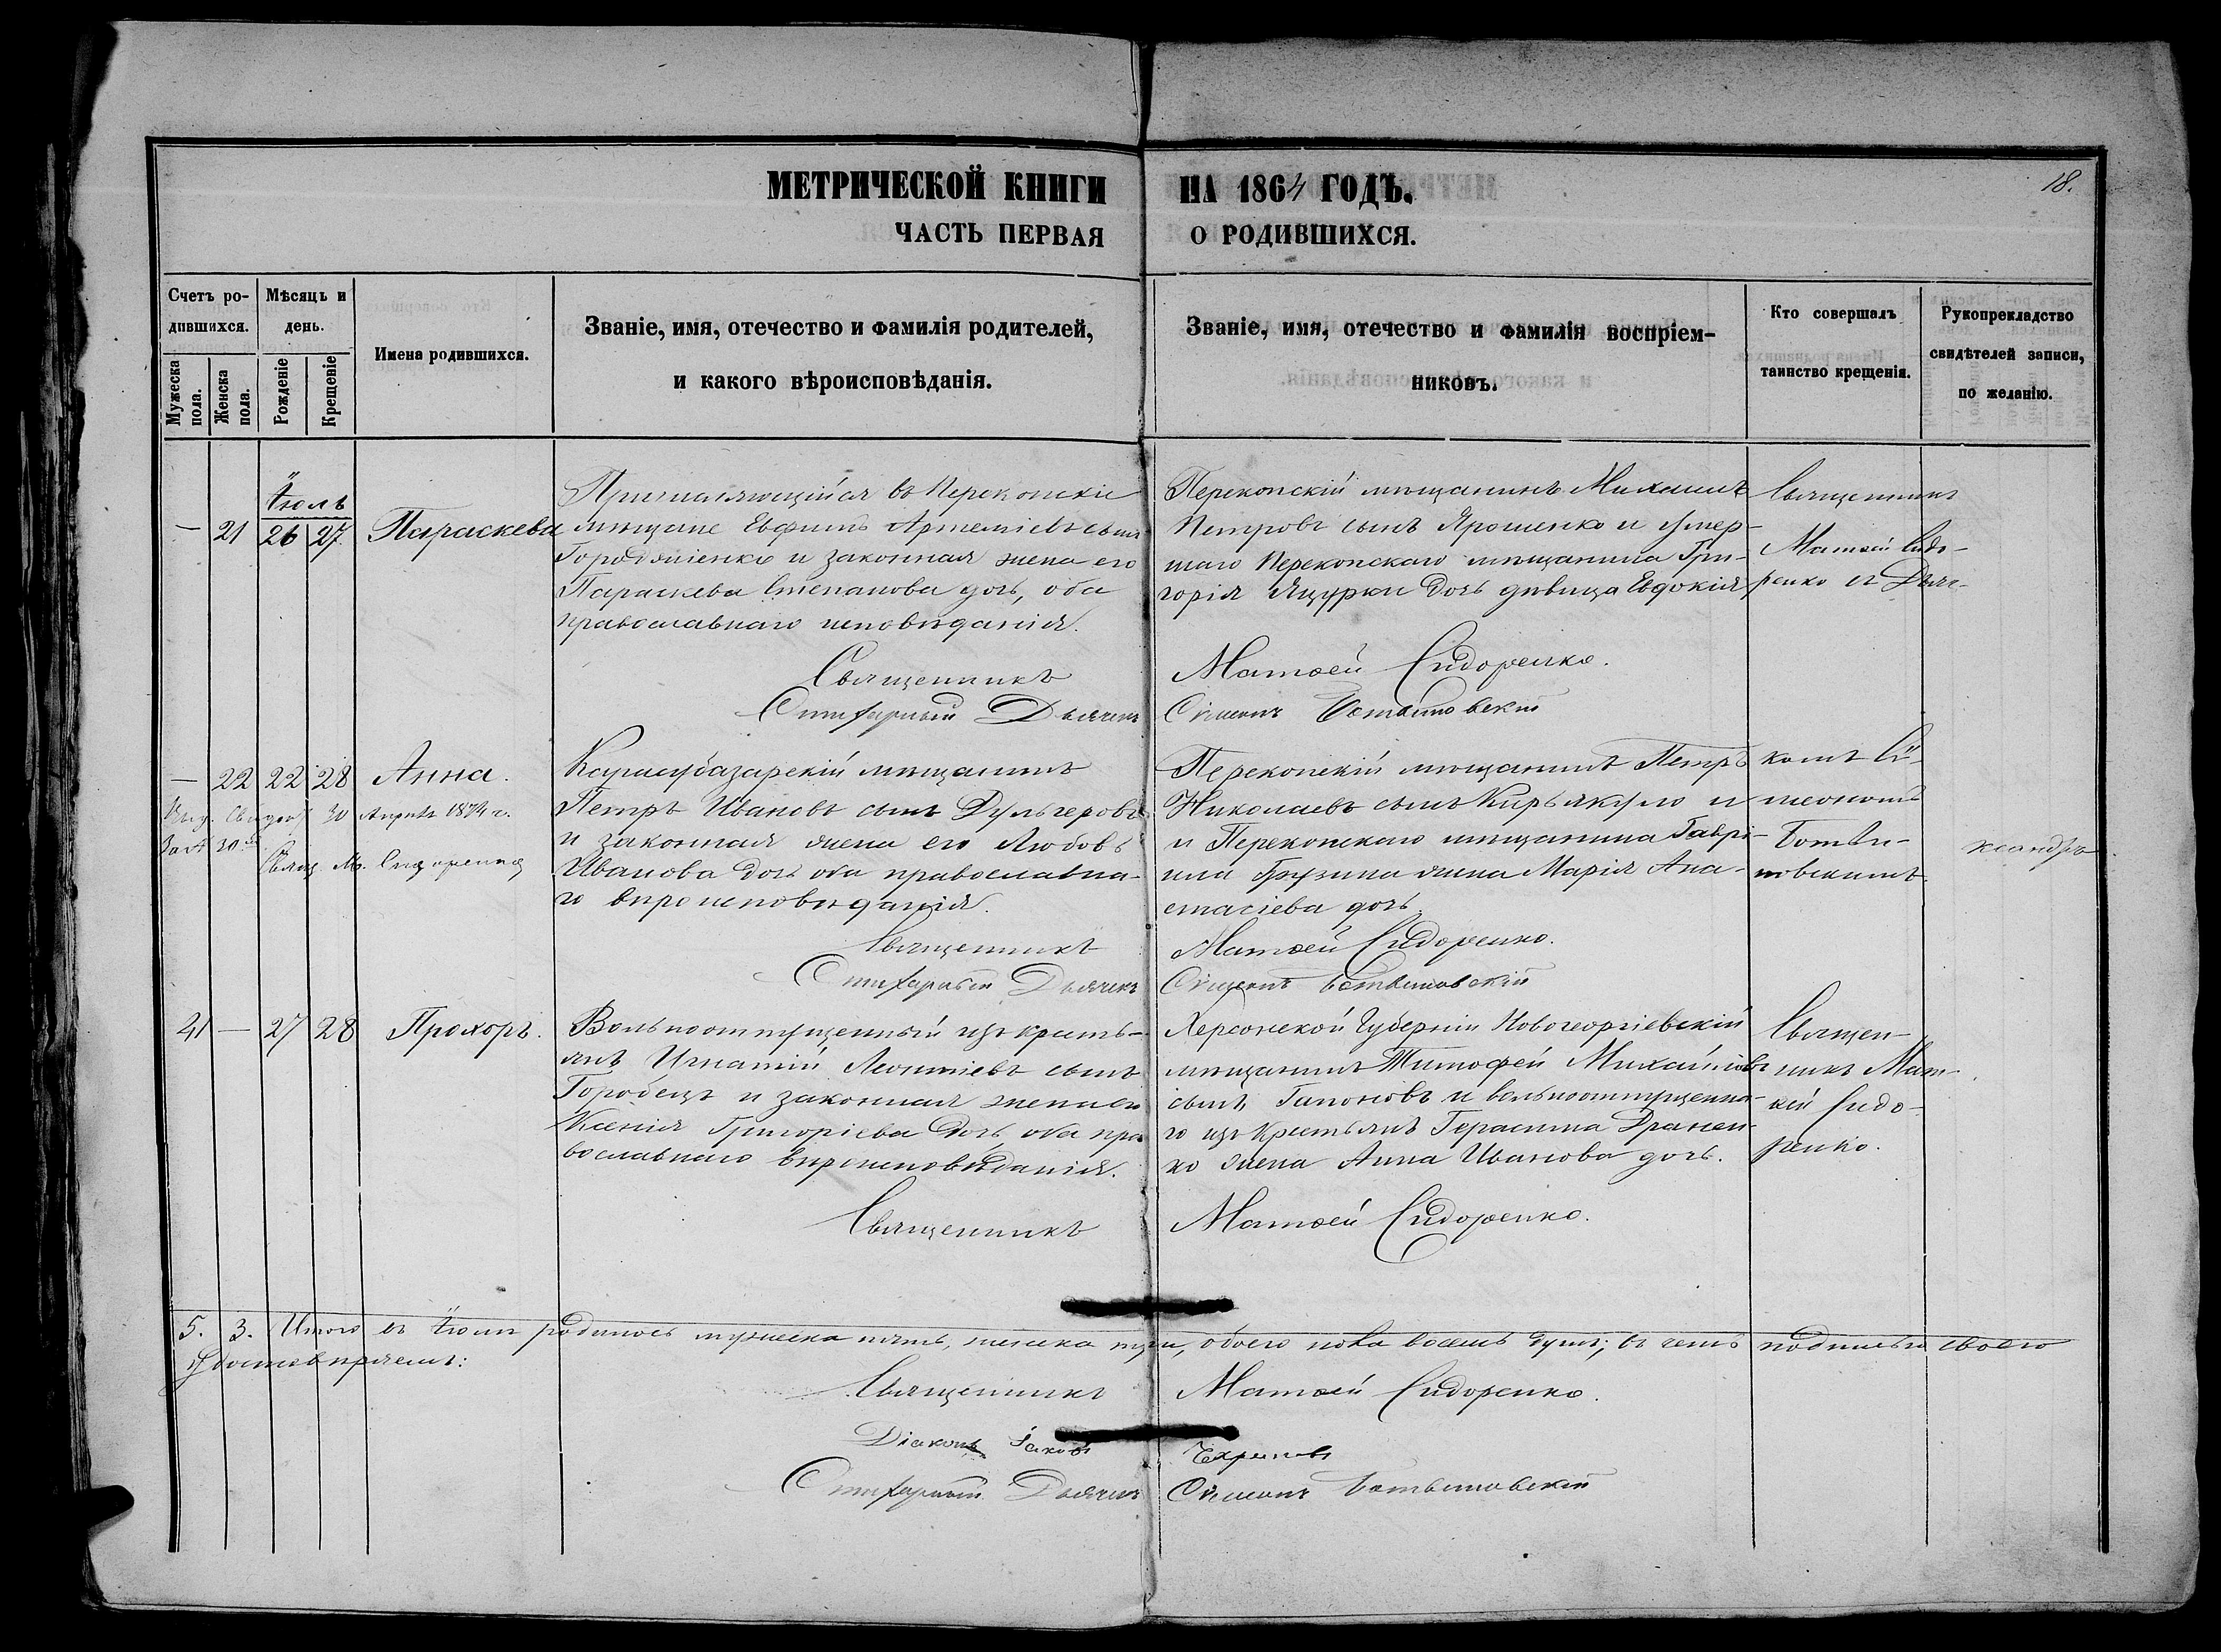 МЕТРИЧЕСКОЙ КНИГИ НА 1864 ГОДЪ.
18.
ЧАСТЬ ПЕРВАЯ О РОДИВШИХСЯ.
Счетъ ро-
дившихся.
Мужеска пола.
Женска пола.
Мѣсяцъ и
день.
Рожденіе
Крещеніе
Имена родившихся.
Званіе, имя, отечество и фамилія родителей,
и какого вѣроисповѣданія.
Званіе, имя, отечество и фамилія воспріем-
никовъ.
Кто совершалъ
таинство крещенія.
Рукоприкладство
свидѣтелей записи,
по желанію.
Іюль
— 21 26 27 Параскева
Причисляющійся въ Перекопскіе
мѣщане Евфимъ Артеміевъ сынъ
и законная жена его
Параскева Степанова дочь, оба
православнаго исповѣданія.
Перекопскій мѣщанинъ Михаилъ
Петровъ сынъ Ярошенко и умер-
шаго Перекопскаго мѣщанина Гри-
горія Яцурки дочь дѣвица Евдокія
Священникъ
Матѳей Сидо-
ренко съ Дьяч-
Священникъ Матѳей Сидоренко.
Стихарный Дьячекъ Сѵмеонъ Ботвиновскій
— 22 22 28 Анна.
Выд. Свидѣт. 30 Апрѣля 1874 г.
За № 30
Свящ. М. Сидоренко
Карасубазарскій мѣщанинъ
Петръ Ивановъ сынъ Дульгеровъ
и законная жена его Любовь
Иванова дочь оба православна-
го вѣроисповѣданія.
Перекопскій мѣщанинъ Петръ
Николаевъ сынъ Кирьякуло и
и Перекопскаго мѣщанина Гаврі-
ила Грузина жена Марія Ана-
стасіева дочь.
комъ Сѵ-
меономъ
Ботви-
новскимъ.
Священникъ Матѳей Сидоренко.
Стихарный Дьячекъ Сѵмеонъ Ботвиновскій
41 — 27 28 Прохоръ.
Вольноотпущенный изъ кресть-
янъ Игнатій Леонтіевъ сынъ
Горобецъ и законная жена его
Ксенія Григоріева дочь, оба пра
вославнаго вѣроисповѣданія.
Херсонской Губерніи Новогеоргіевскій
мѣщанинъ Тимофей Михайловъ
сынъ Гапоновъ и вольноотпущенна-
го изъ крестьянъ Герасима
жена Анна Иванова дочь.
Священ-
никъ Мат-
ѳей Сидо-
ренко.
Священникъ Матѳей Сидоренко.
5. 3. Итого въ Іюлѣ родилось мужеска пять, женска три, обоего пола восемь душъ; въ чемъ подписью своею
удостовѣряемъ:
Священникъ Матѳей Сидоренко.
Діаконъ Іаковъ
Стихарный Дьячекъ Сѵмеонъ Ботвиновскій